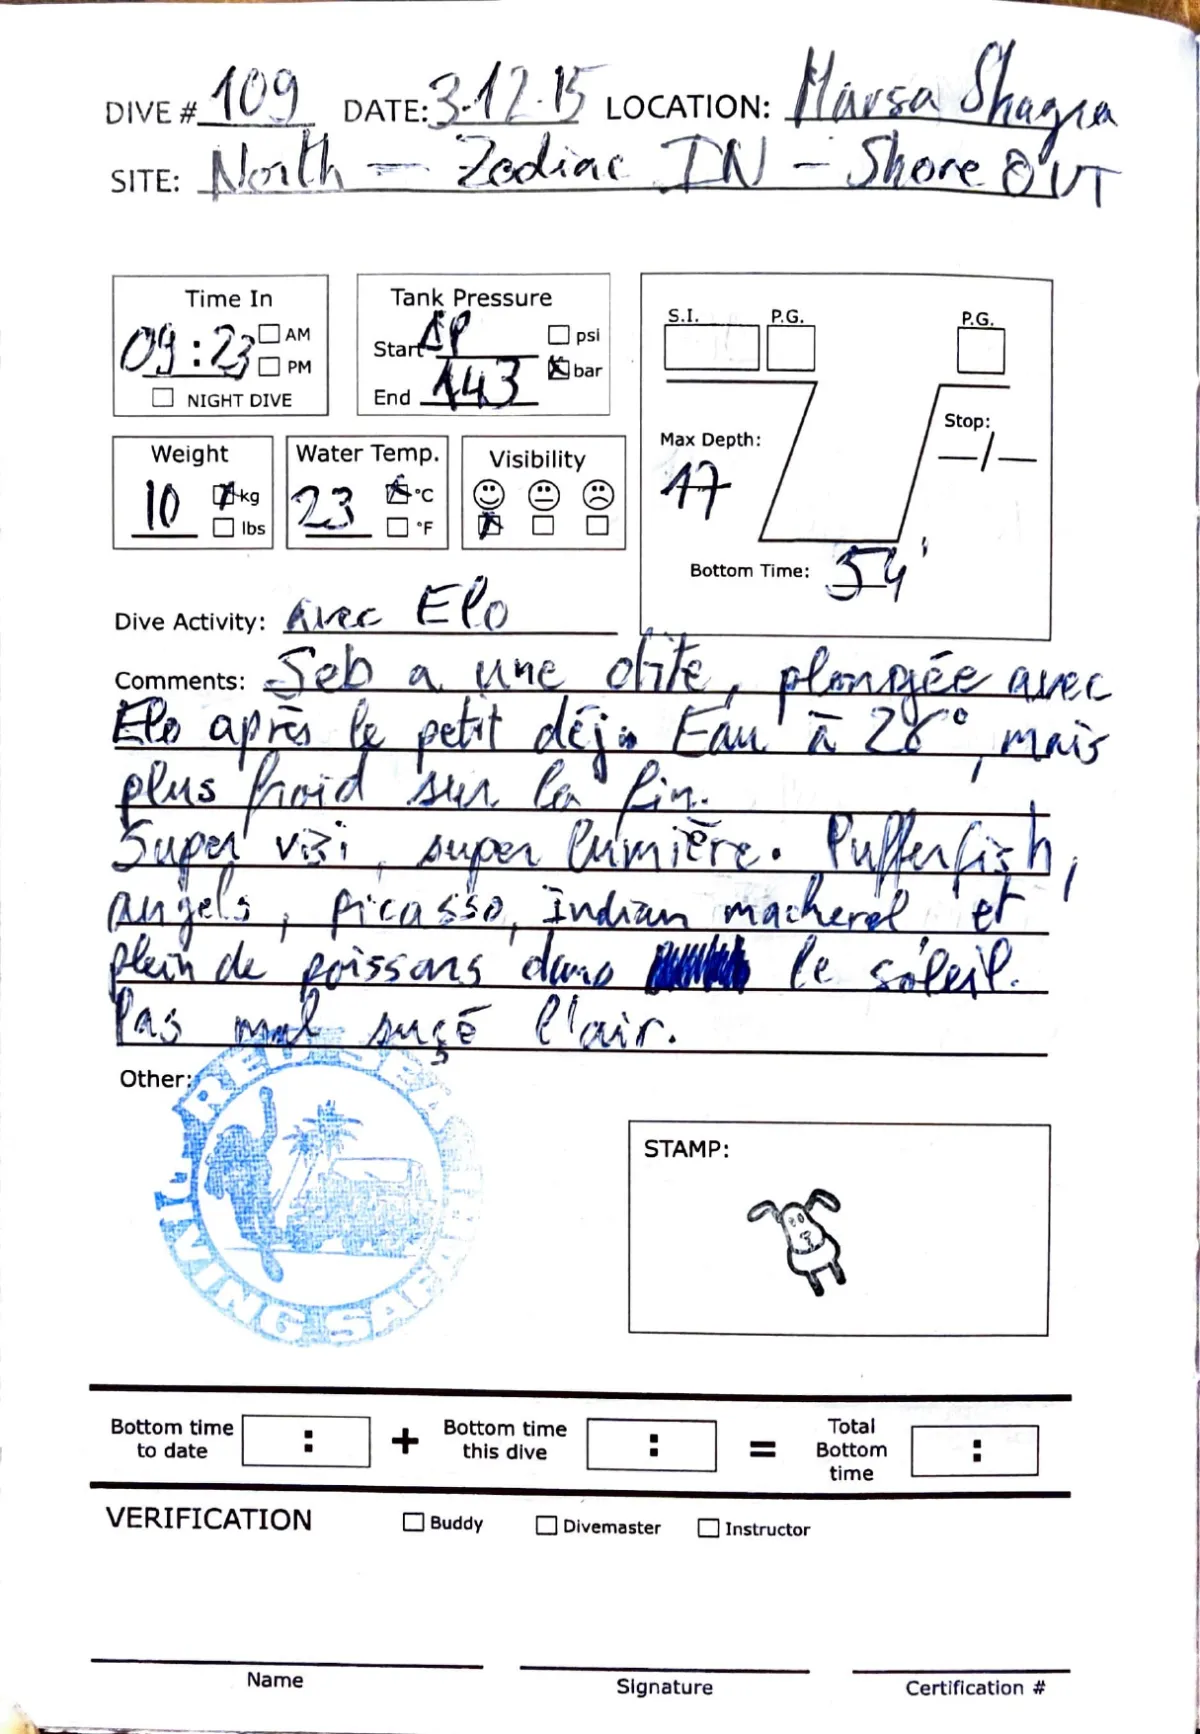 DIVE # 109 DATE: 3.12.15 LOCATION: Marsa Shagra
SITE: North — Zodiac IN - Shore OUT
Time In
09:23 AM
PM
NIGHT DIVE
Tank Pressure
Start psi
End 143 bar
S.I. P.G. P.G.
Max Depth: Stop:
17
Bottom Time: 54'
Weight
10 kg
lbs
Water Temp.
23 °C
°F
Visibility
Dive Activity: avec Elo
Comments: Seb a une otite, plongée avec
Elo après le petit déj. Eau à 26°, mais
plus froid sur la fin.
Super vizi, super lumière. Pufferfish,
angels, picasso, Indian macherel et
plein de poissons dans le soleil.
Pas mal suçé l'air.
Other:
RED SEA DIVING SAFARI
STAMP:
Bottom time
to date : + Bottom time
this dive : = Total
Bottom
time :
VERIFICATION Buddy Divemaster Instructor
Name Signature Certification #